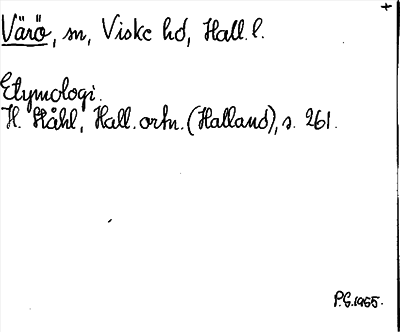 Värö, sn, Viske hd, Hall. l.
Etymologi.
H. Ståhl, Hall. ortn. (Halland), s. 261.
P.G. 1965.